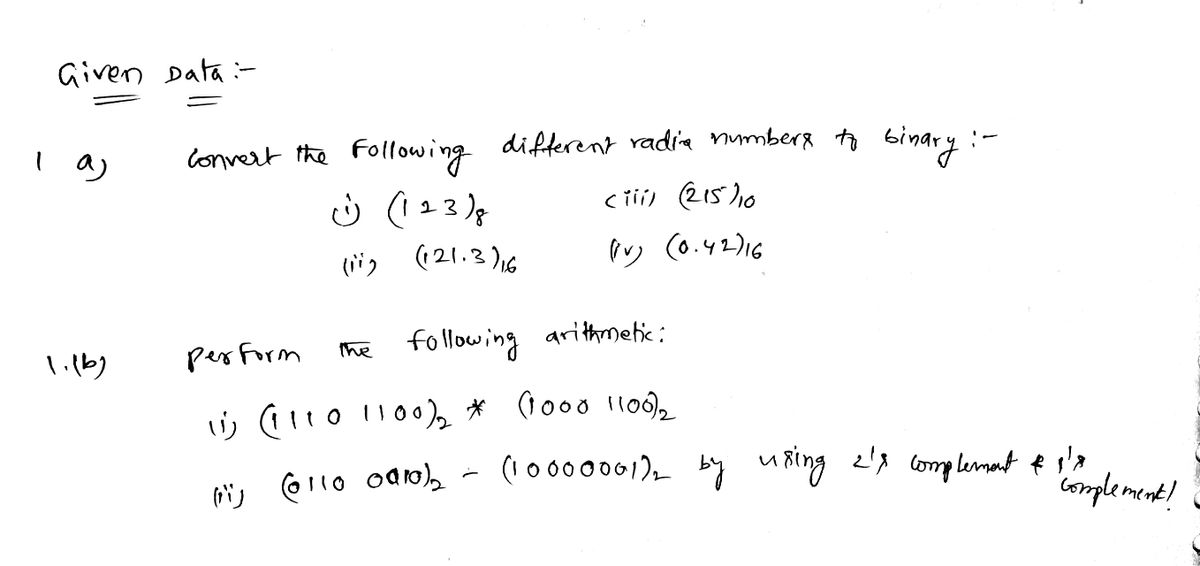 Given Data :-
1 a) Convert the Following different radix numbers to binary :-
(i) (123)8 (iii) (215)10
(ii) (121.3)16 (iv) (0.42)16
1.(b) perform the following arithmetic:
(i) (1110 1100)2 * (1000 1100)2
(ii) (0110 0010)2 - (10000001)2 by using 2's complement & 1's
complement!